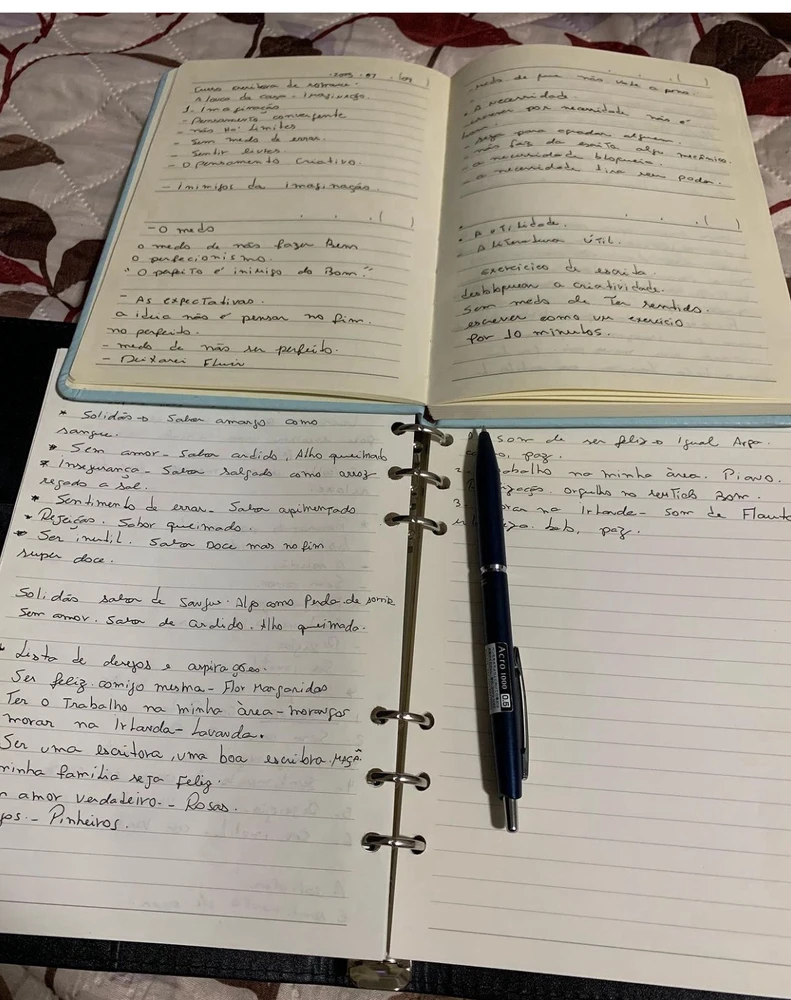 2023 · 07 · (09 )
Curso escritora de
1- Imaginação
- Pensamento convergente
- não há limites
- Sem medo de errar.
- Sentir livres
- O pensamento criativo.
- inimigos da imaginação.
- O medo
o medo de não fazer Bem
o perfecionismo.
"O perfeito é inimigo do Bom."
- As expectativas.
a ideia não é pensar no fim.
no perfeito.
- medo de não ser perfeito.
- Deixarei Fluir
- medo de que não vale a pena.
• A necessidade
escrever por necessidade não é
bom.
- seja para agradar alguém.
- não faz da escrita algo mecânico.
- a necessidade bloqueia.
- a necessidade tira seu poder.
• A utilidade.
- A literatura útil.
exercício de escrita
desbloquear a criatividade.
Sem medo de Ter sentido.
escrever como um exercício
por 10 minutos.
* Solidão → Sabor amargo como
sangue.
* Sem amor - Sabor ardido, Alho queimado
* Insegurança - Sabor salgado como arroz
regado a sal.
* Sentimento de errar - Sabor apimentado
* Rejeição. Sabor queimado.
* Ser inutil. Sabor Doce mas no fim
super doce.
Solidão sabor de Sangue. Algo como Perda de
Sem amor. Sabor de ardido. Alho queimado.
Lista de desejos e aspirações.
Ser feliz comigo mesma - Flor Margaridas
Ter o Trabalho na minha àrea - morangos
morar na Irlanda - Lavanda.
Ser uma escritora, uma boa escritora. MAÇÃ.
minha família seja Feliz.
amor verdadeiro. - Rosas.
- Pinheiros.
som de ser feliz → Igual Arpa.
paz.
trabalho na minha área. Piano.
orgulho no sentido Bom.
3. morar na Irlanda - som de Flauta
paz.
Acro 1000 0.5